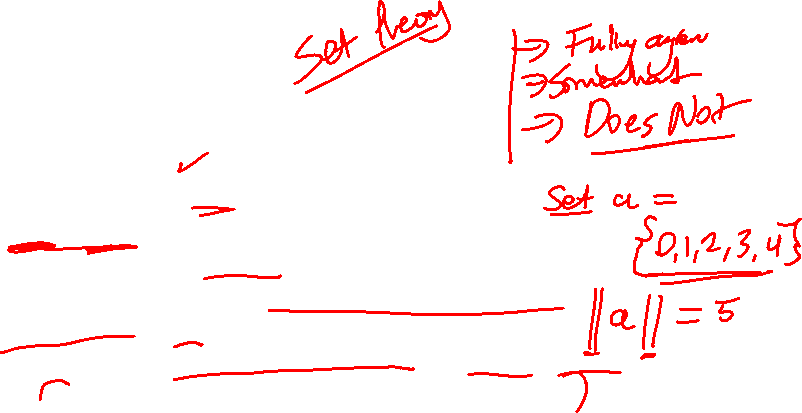 Set theory
→ Fully agree
→ Somewhat
→ Does Not
Set a =
{0,1,2,3,4}
||a|| = 5